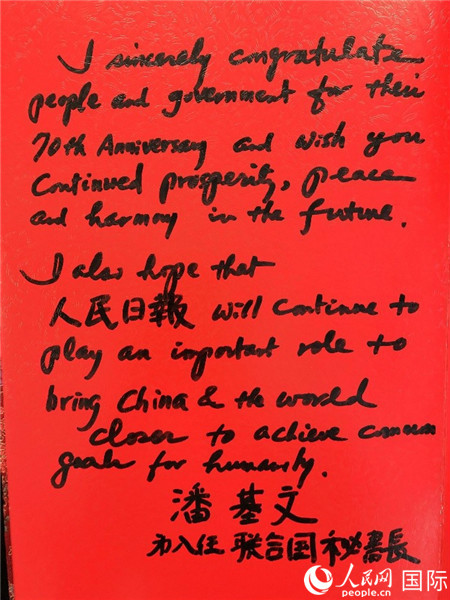 I sincerely congratulate
people and government for their
70th Anniversary and wish you
Continued prosperity, peace
and harmony in the future.
I also hope that
人民日報 will continue to
play an important role to
bring China & the world
closer to achieve common
goals for humanity.
潘基文
联合国 祕書長
人民网 国际
people.cn